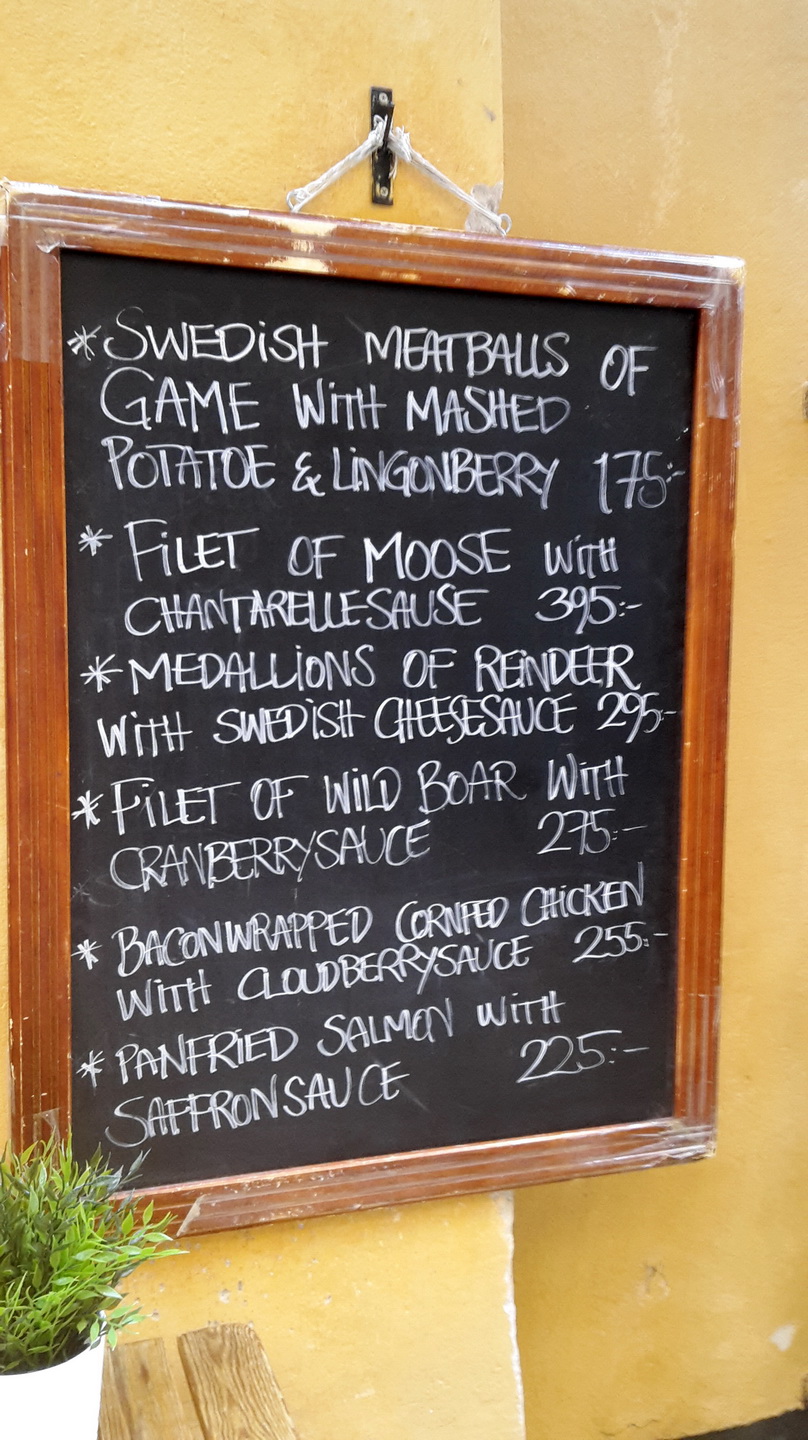 *SWEDISH MEATBALLS OF
GAME WITH MASHED
POTATOE & LINGONBERRY 175:-
* FILET OF MOOSE WITH
CHANTARELLESAUSE 395:-
*MEDALLIONS OF REINDEER
WITH SWEDISH CHEESESAUCE 295:-
*FILET OF WILD BOAR WITH
CRANBERRYSAUCE 275:-
* BACONWRAPPED CORNFED CHICKEN
WITH CLOUDBERRYSAUCE 255:-
*PANFRIED SALMON WITH
SAFFRONSAUCE 225:-